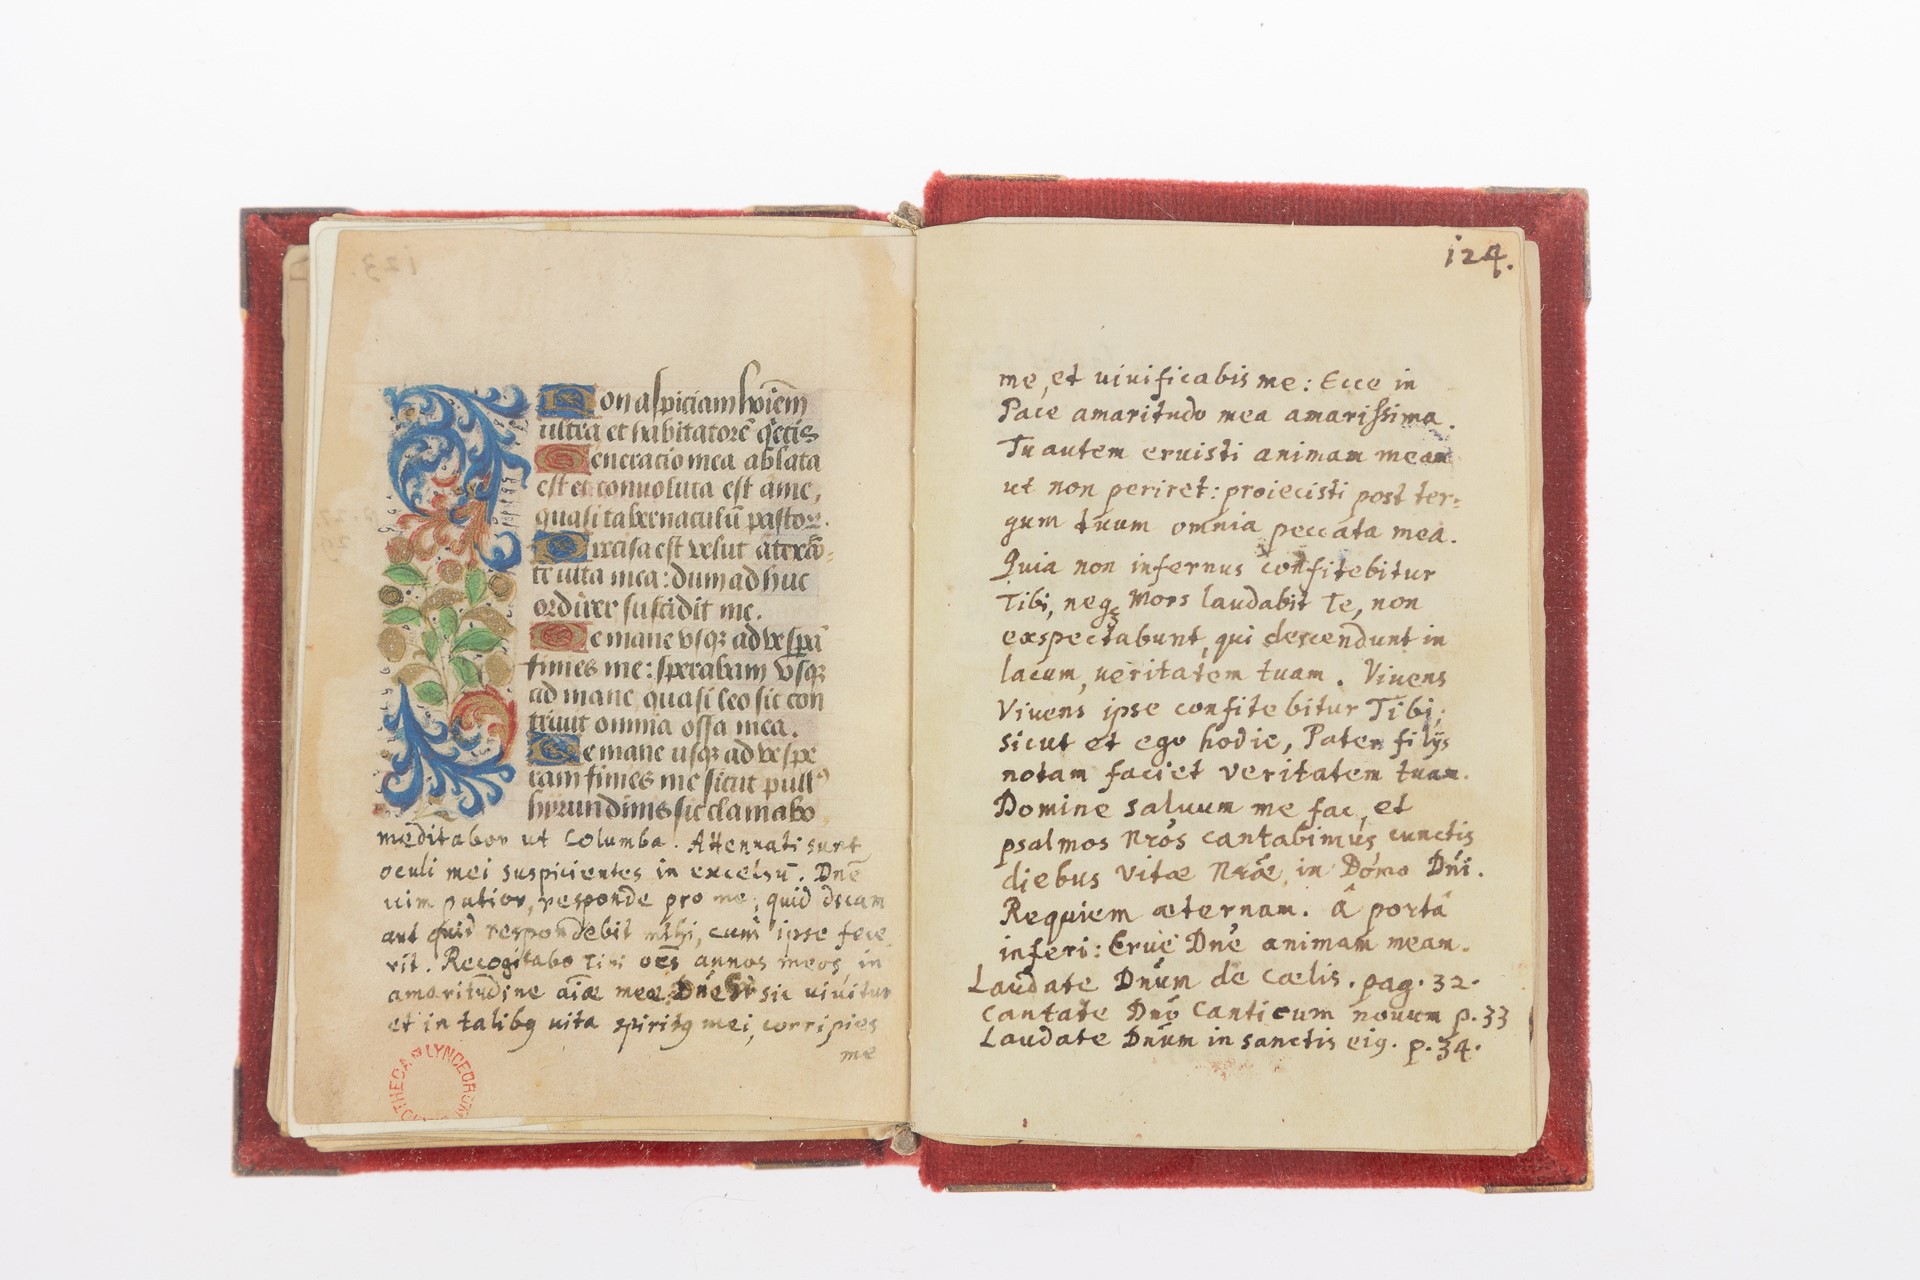 Non aspiciam hoīem
ultra et habitatorē q̄etis
Generatio mea ablata
est et conuoluta est a me,
quasi tabernaculū pastoꝝ.
Precisa est velut a texē-
te uita mea: dum ad huc
ordirer succidit me.
De mane vsqꝫ ad vesperā
finies me: sperabam vsqꝫ
ad mane quasi leo sic con
triuit omnia ossa mea.
De mane usqꝫ ad vespe
ram finies me sicut pullꝰ
hyrundinis sic clamabo
meditabor ut Columba. Attenuati sunt
oculi mei suspicientes in excelsū. Dnē
uim patior, responde pro me, quid dicam
aut quid respondebit mihi, cum ipse fece
rit. Recogitabo Tibi oēs annos meos in
amaritudine aīæ meæ Dnē si sic uiuitur
et in talibꝰ uita spiritꝰ mei, corripies
me
BIBLIOTHECA LYNCEORUM
124.
me, et uiuificabis me: Ecce in
Pace amaritudo mea amarissima.
Tu autem eruisti animam meam
ut non periret: proiecisti post ter-
gum tuum omnia peccata mea.
Quia non infernus confitebitur
Tibi, neqꝫ Mors laudabit Te, non
exspectabunt, qui descendunt in
lacum, ueritatem tuam. Viuens
Viuens ipse confitebitur Tibi,
sicut et ego hodie, Pater filijs
notam faciet veritatem tuam.
Domine saluum me fac, et
psalmos Nr̄os cantabimus cunctis
diebus Vitæ Nr̄æ in Domo Dn̄i.
Requiem æternam. Â portâ
inferi: Erue Dnē animam meam.
Laudate Dn̄um de Cælis. pag. 32.
Cantate Dn̄o Canticum nouum p. 33
Laudate Dn̄um in sanctis eiꝰ. p. 34.